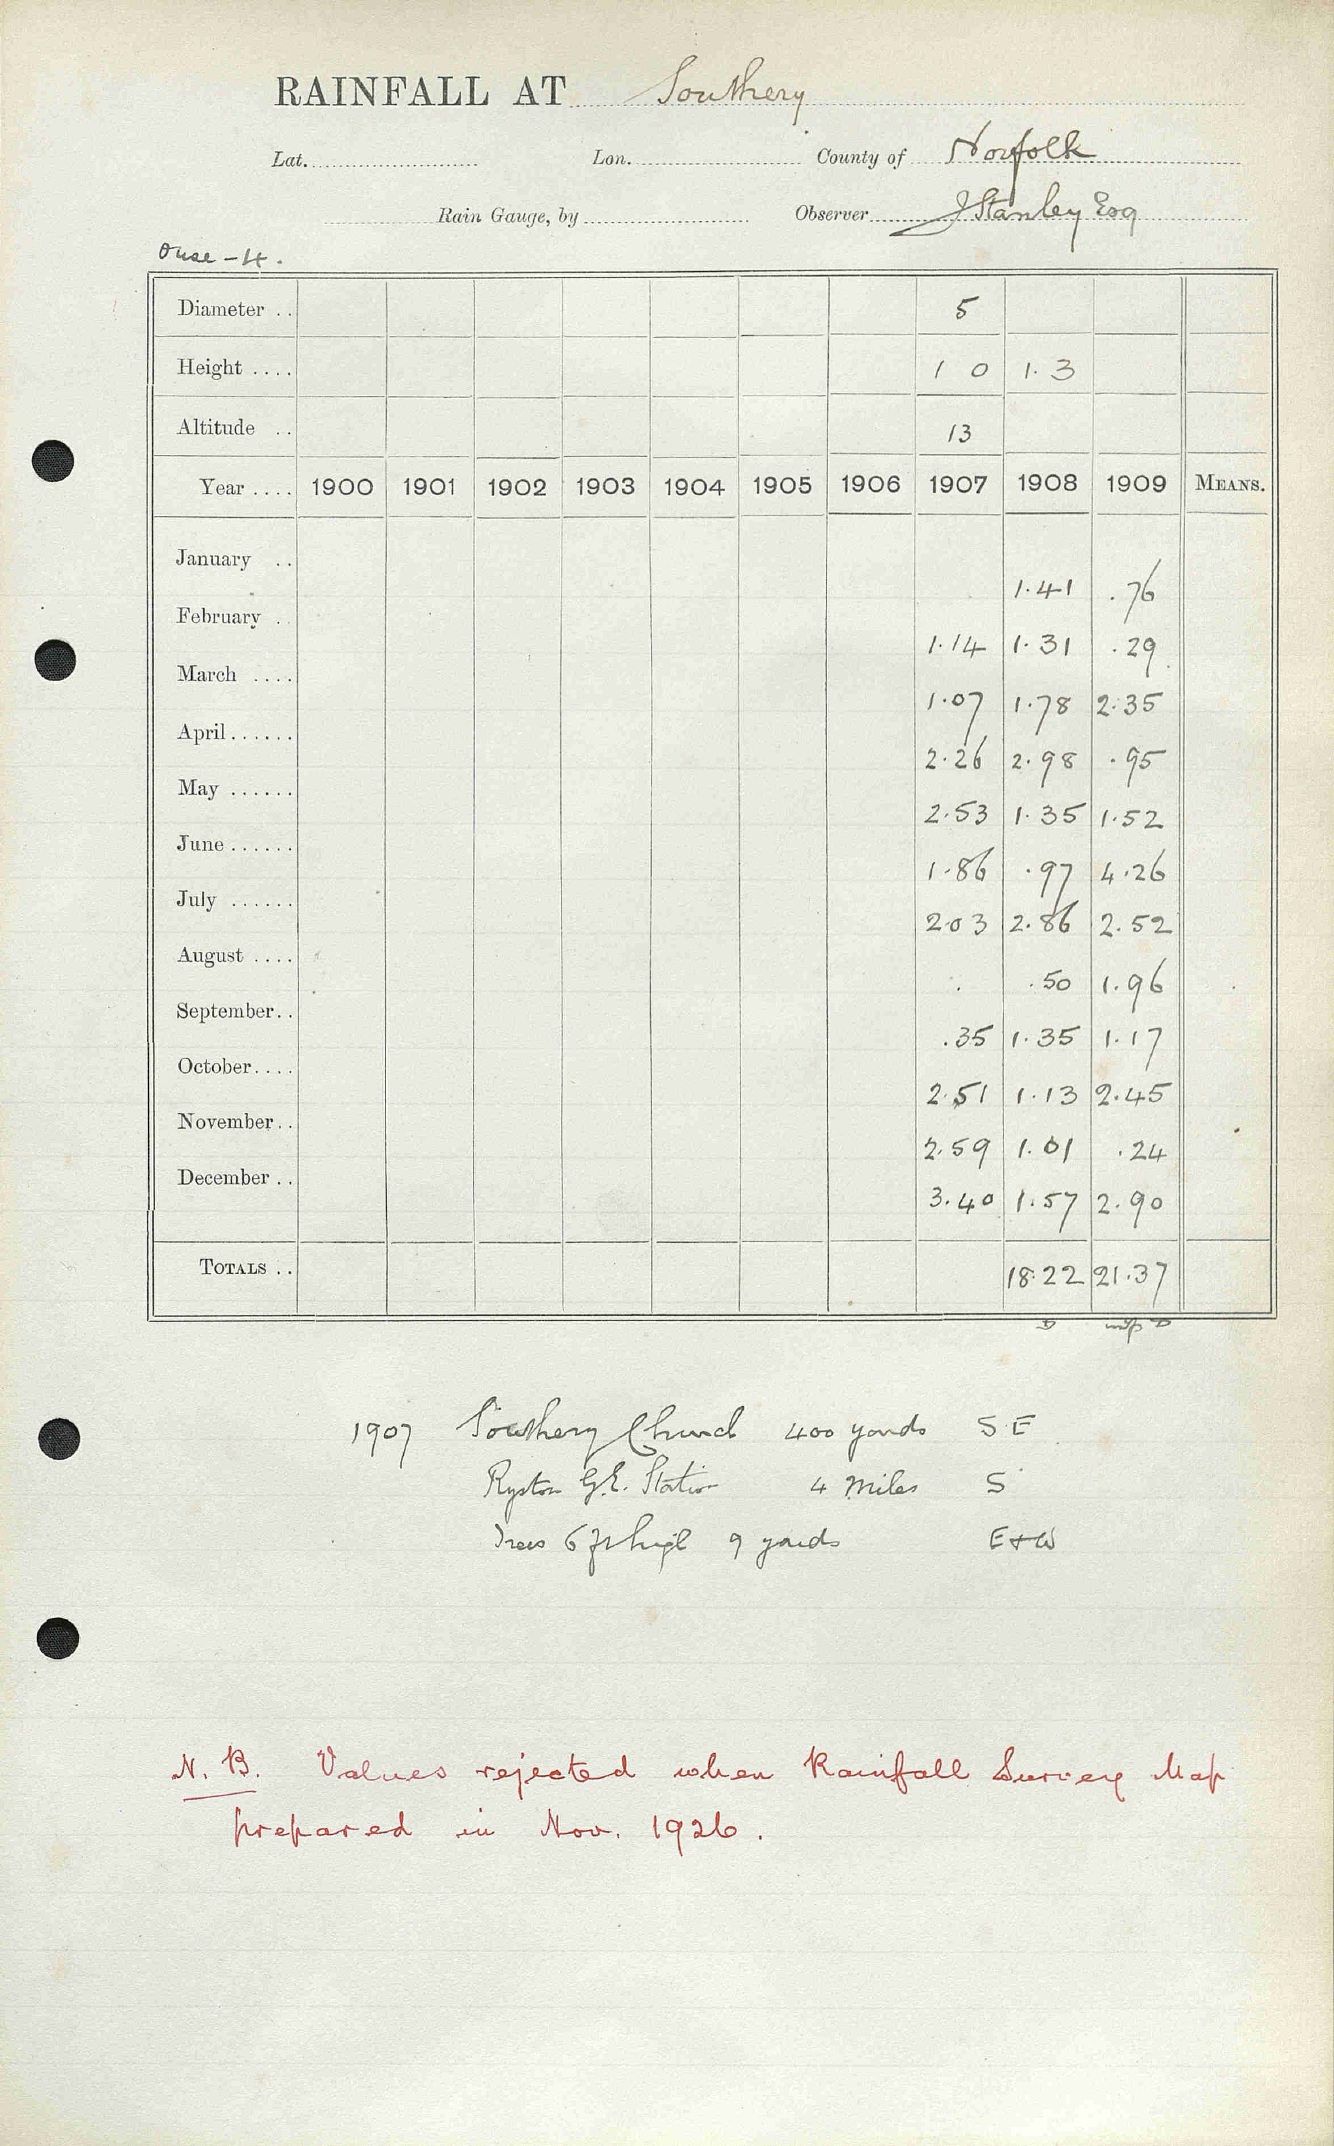 RAINFALL AT Southery
Lat. Lon. County of Norfolk
Rain Gauge, by Observer J Stanley Esq
Ouse - 4.
Diameter .. 5
Height .... 1 0 1.3
Altitude .. 13
Year .... 1900 1901 1902 1903 1904 1905 1906 1907 1908 1909 MEANS.
January .. 1.41 .76
February .. 1.14 1.31 .29
March .... 1.07 1.78 2.35
April...... 2.26 2.98 .95
May ...... 2.53 1.35 1.52
June...... 1.86 .97 4.26
July ...... 2.03 2.86 2.52
August .... . .50 1.96
September.. .35 1.35 1.17
October.... 2.51 1.13 2.45
November.. 2.59 1.01 .24
December .. 3.40 1.57 2.90
TOTALS .. 18.22 21.37
1907 Southery Church 400 yards S.E
Ryston G.E. Station 4 miles S
Trees 6 ft high 9 yards E+W
N.B. Values rejected when Rainfall Survey Map
prepared in Nov. 1926.